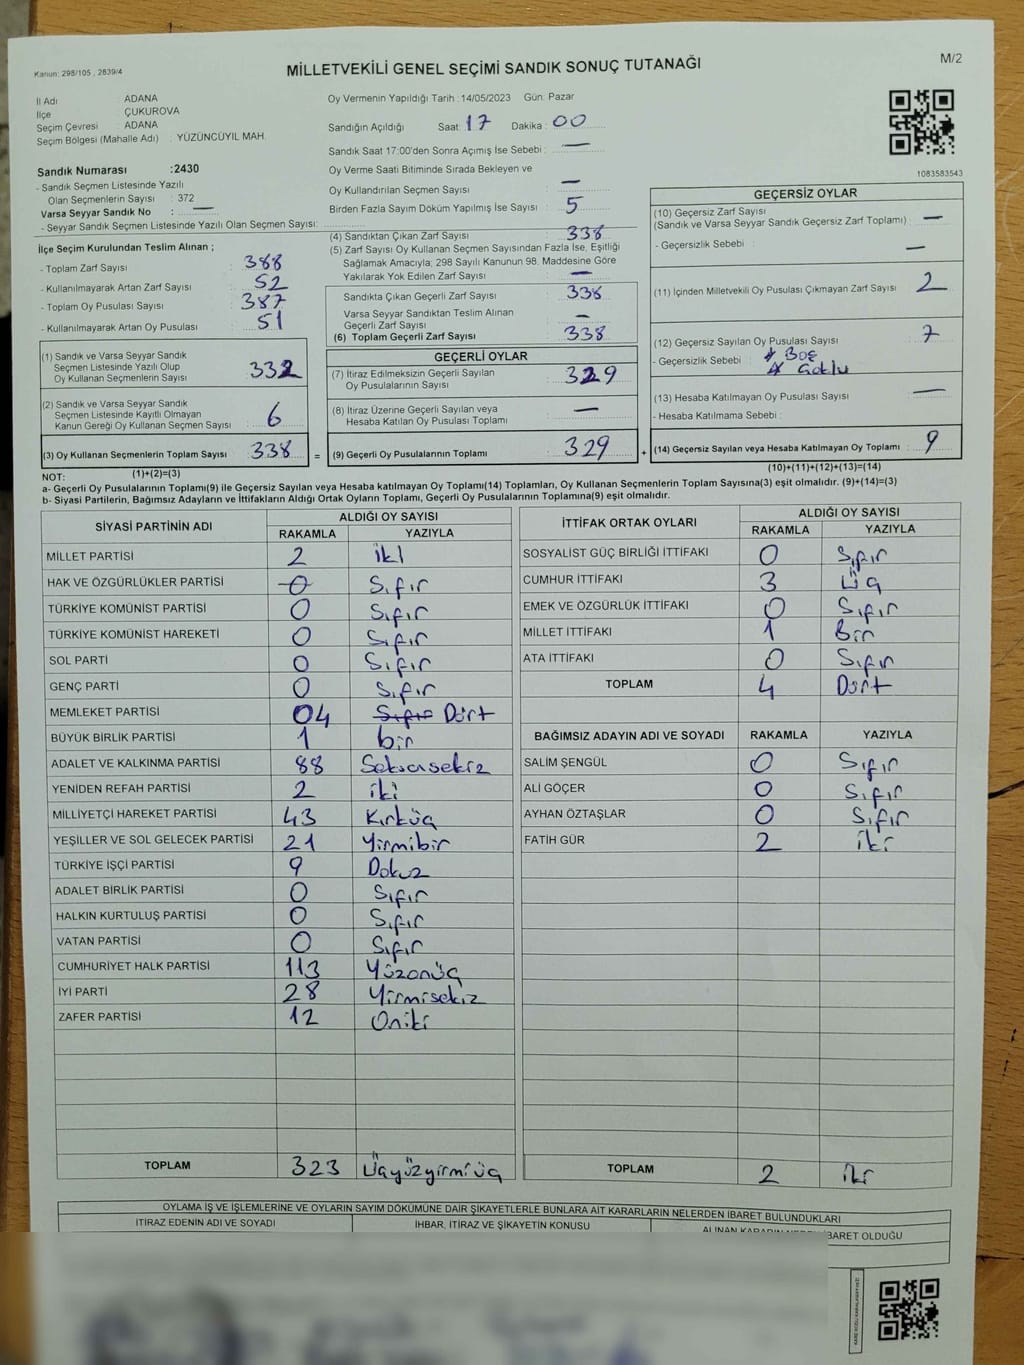 Kanun: 298/105 , 2839/4
MİLLETVEKİLİ GENEL SEÇİMİ SANDIK SONUÇ TUTANAĞI
M/2
İl Adı : ADANA
İlçe : ÇUKUROVA
Seçim Çevresi : ADANA
Seçim Bölgesi (Mahalle Adı) : YÜZÜNCÜYIL MAH.
Oy Vermenin Yapıldığı Tarih : 14/05/2023 Gün: Pazar
Sandığın Açıldığı Saat: 17 Dakika : 00
Sandık Saat 17:00'den Sonra Açımış İse Sebebi : —
Oy Verme Saati Bitiminde Sırada Bekleyen ve
Oy Kullandırılan Seçmen Sayısı : —
Birden Fazla Sayım Döküm Yapılmış İse Sayısı : 5
1083583543
Sandık Numarası :2430
- Sandık Seçmen Listesinde Yazılı
Olan Seçmenlerin Sayısı : 372
Varsa Seyyar Sandık No : —
- Seyyar Seçmen Listesinde Yazılı Olan Seçmen Sayısı:
İlçe Seçim Kurulundan Teslim Alınan ;
- Toplam Zarf Sayısı : 388
- Kullanılmayarak Artan Zarf Sayısı : 52
- Toplam Oy Pusulası Sayısı : 387
- Kullanılmayarak Artan Oy Pusulası : 51
(1) Sandık ve Varsa Seyyar Sandık
Seçmen Listesinde Yazılı Olup
Oy Kullanan Seçmenlerin Sayısı : 332
(2) Sandık ve Varsa Seyyar Sandık
Seçmen Listesinde Kayıtlı Olmayan
Kanun Gereği Oy Kullanan Seçmen Sayısı : 6
(3) Oy Kullanan Seçmenlerin Toplam Sayısı : 338
(4) Sandıktan Çıkan Zarf Sayısı : 338
(5) Zarf Sayısı Oy Kullanan Seçmen Sayısından Fazla İse, Eşitliği
Sağlamak Amacıyla; 298 Sayılı Kanunun 98. Maddesine Göre
Yakılarak Yok Edilen Zarf Sayısı : —
Sandıkta Çıkan Geçerli Zarf Sayısı : 338
Varsa Seyyar Sandıktan Teslim Alınan
Geçerli Zarf Sayısı : —
(6) Toplam Geçerli Zarf Sayısı : 338
GEÇERLİ OYLAR
(7) İtiraz Edilmeksizin Geçerli Sayılan
Oy Pusulalarının Sayısı : 329
(8) İtiraz Üzerine Geçerli Sayılan veya
Hesaba Katılan Oy Pusulası Toplamı : —
= (9) Geçerli Oy Pusulalarının Toplamı : 329
GEÇERSİZ OYLAR
(10) Geçersiz Zarf Sayısı
(Sandık ve Varsa Seyyar Sandık Geçersiz Zarf Toplamı) : —
- Geçersizlik Sebebi : —
(11) İçinden Milletvekili Oy Pusulası Çıkmayan Zarf Sayısı : 2
(12) Geçersiz Sayılan Oy Pusulası Sayısı : 7
- Geçersizlik Sebebi : Boş
Çoklu
(13) Hesaba Katılmayan Oy Pusulası Sayısı : —
- Hesaba Katılmama Sebebi :
+ (14) Geçersiz Sayılan veya Hesaba Katılmayan Oy Toplamı : 9
NOT: (1)+(2)=(3)
(10)+(11)+(12)+(13)=(14)
a- Geçerli Oy Pusulalarının Toplamı(9) ile Geçersiz Sayılan veya Hesaba Katılmayan Oy Toplamı(14) Toplamları, Oy Kullanan Seçmenlerin Toplam Sayısına(3) eşit olmalıdır. (9)+(14)=(3)
b- Siyasi Partilerin, Bağımsız Adayların ve İttifakların Aldığı Ortak Oyların Toplamı, Geçerli Oy Pusulalarının Toplamına(9) eşit olmalıdır.
SİYASİ PARTİNİN ADI
ALDIĞI OY SAYISI
RAKAMLA YAZIYLA
MİLLET PARTİSİ 2 iki
HAK VE ÖZGÜRLÜKLER PARTİSİ 0 Sıfır
TÜRKİYE KOMÜNİST PARTİSİ 0 Sıfır
TÜRKİYE KOMÜNİST HAREKETİ 0 Sıfır
SOL PARTİ 0 Sıfır
GENÇ PARTİ 0 Sıfır
MEMLEKET PARTİSİ 04 Sıfır Dört
BÜYÜK BİRLİK PARTİSİ 1 bir
ADALET VE KALKINMA PARTİSİ 88 Seksensekiz
YENİDEN REFAH PARTİSİ 2 iki
MİLLİYETÇİ HAREKET PARTİSİ 43 Kırküç
YEŞİLLER VE SOL GELECEK PARTİSİ 21 Yirmibir
TÜRKİYE İŞÇİ PARTİSİ 9 Dokuz
ADALET BİRLİK PARTİSİ 0 Sıfır
HALKIN KURTULUŞ PARTİSİ 0 Sıfır
VATAN PARTİSİ 0 Sıfır
CUMHURİYET HALK PARTİSİ 113 Yüzonüç
İYİ PARTİ 28 Yirmisekiz
ZAFER PARTİSİ 12 Oniki
TOPLAM 323 Üçyüzyirmiüç
İTTİFAK ORTAK OYLARI
ALDIĞI OY SAYISI
RAKAMLA YAZIYLA
SOSYALİST GÜÇ BİRLİĞİ İTTİFAKI 0 Sıfır
CUMHUR İTTİFAKI 3 Üç
EMEK VE ÖZGÜRLÜK İTTİFAKI 0 Sıfır
MİLLET İTTİFAKI 1 Bir
ATA İTTİFAKI 0 Sıfır
TOPLAM 4 Dört
BAĞIMSIZ ADAYIN ADI VE SOYADI RAKAMLA YAZIYLA
SALİM ŞENGÜL 0 Sıfır
ALİ GÖÇER 0 Sıfır
AYHAN ÖZTAŞLAR 0 Sıfır
FATİH GÜR 2 iki
TOPLAM 2 iki
OYLAMA İŞ VE İŞLEMLERİNE VE OYLARIN SAYIM DÖKÜMÜNE DAİR ŞİKAYETLERLE BUNLARA AİT KARARLARIN NELERDEN İBARET BULUNDUKLARI
İTİRAZ EDENİN ADI VE SOYADI
İHBAR, İTİRAZ VE ŞİKAYETİN KONUSU
ALINAN KARARIN İBARET OLDUĞU